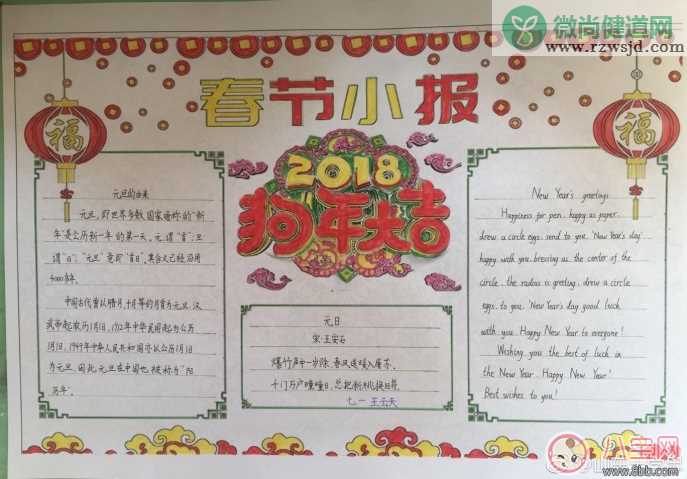 微尚健道网
www.rzwsjd.com
春节小报
福
福
2018
狗年大吉
元旦的由来
元旦,即世界多数国家通称的“新
年”,是公历新一年的第一天。元,谓“首”;旦
谓“日”;“元旦”意即“首日”。其含义已经沿用
4000多年。
中国古代曾以腊月、十月等的月首为元旦,汉
武帝起农历1月1日,1912年中华民国起为公历
1月1日,1949年中华人民共和国亦以公历1月1日
为元旦,因此元旦在中国也被称为“阳
历年”。
元日
宋·王安石
爆竹声中一岁除,春风送暖入屠苏。
千门万户曈曈日,总把新桃换旧符。
七一 王云天
New Year's greetings
Happiness for pen, happy as paper,
drew a circle eggs, send to you, "New Year's day"
happy with you, blessing as the center of the
circle, the radius is greeting, drew a circle
eggs, to you, New Year's day good luck
with you. Happy New Year to everyone!
Wishing you the best of luck in
the New Year. Happy New Year!
Best wishes to you!
八宝网
www.8bb.com